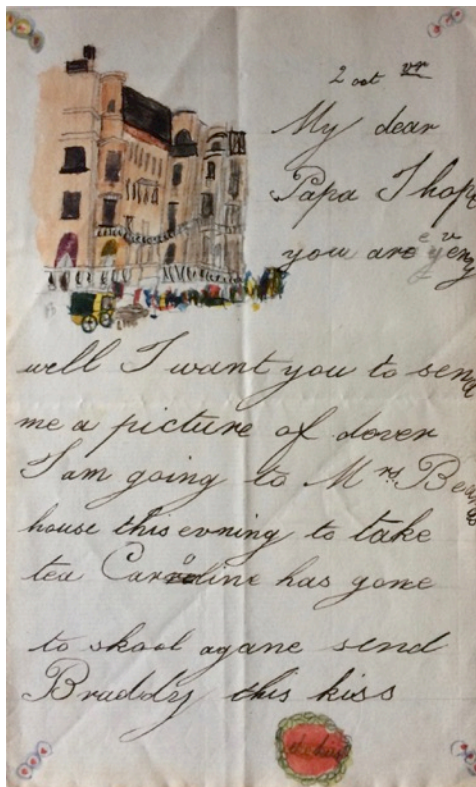 2 oct vr
My dear
Papa I hope
you are very
well I want you to send
me a picture of dover
I am going to Mrs.
house this evning to take
tea Caroline has gone
to skool agane send
Braddy this kiss
the kiss